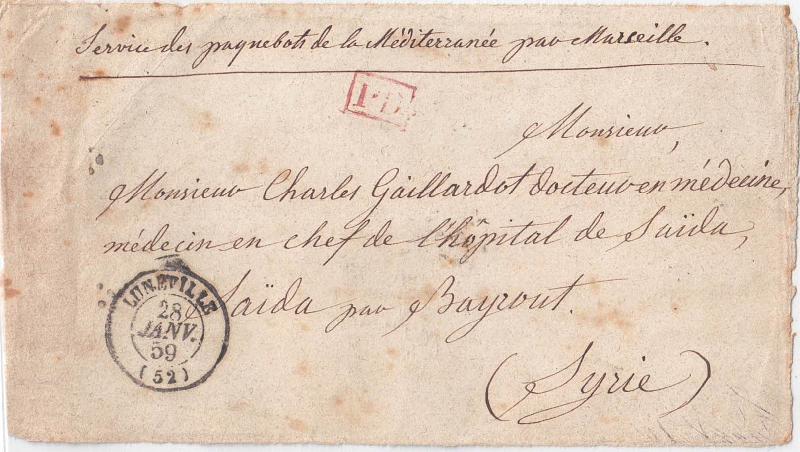 Service des paquebots de la Méditerranée par Marseille.
P.D.
Monsieur,
Monsieur Charles Gaillardot docteur en médecine,
médecin en chef de l'hôpital de Saïda,
Saïda par Bayrout.
(Syrie)
LUNEVILLE
28
JANV.
59
(52)